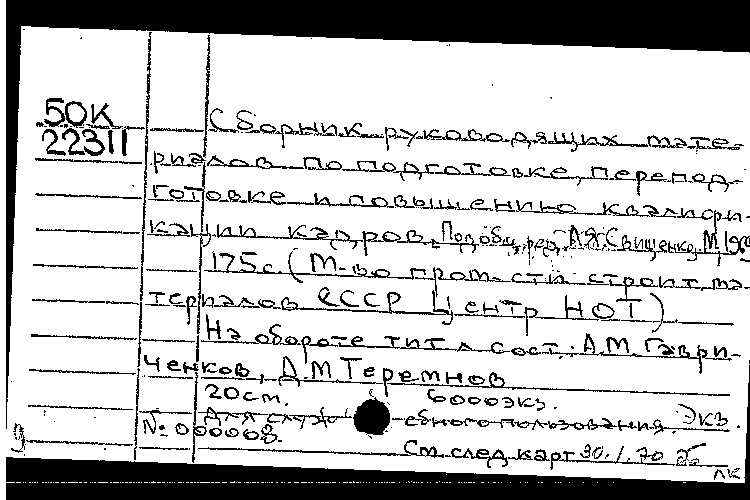 50К
22311
Сборник руководящих мате-
риалов по подготовке, перепод-
готовке и повышению квалифи-
кации кадров. Под общ. ред. А.Я. Свищенко. М., 1969
175 с. (М-во пром-сти строит. ма-
териалов СССР Центр НОТ).
На обороте тит. л. сост.: А.М. Гаври-
ченков, Д.М. Теремнов
20см. 6000экз.
Для служебного пользования. Экз.
№ 000008.
См. след. карт. 30.1.70
лк